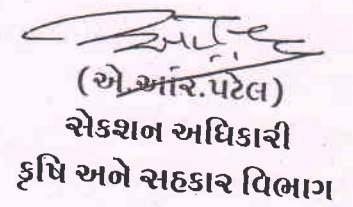 (એ.આર.પટેલ)
સેકશન અધિકારી
કૃષિ અને સહકાર વિભાગ